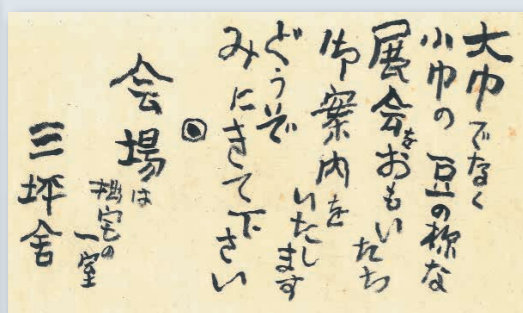 大巾でなく
小巾の豆の様な
展会をおもいたち
御案内を
いたします
どうぞ
みにきて下さい
◉
会場は
拙宅の
一室
三坪舎